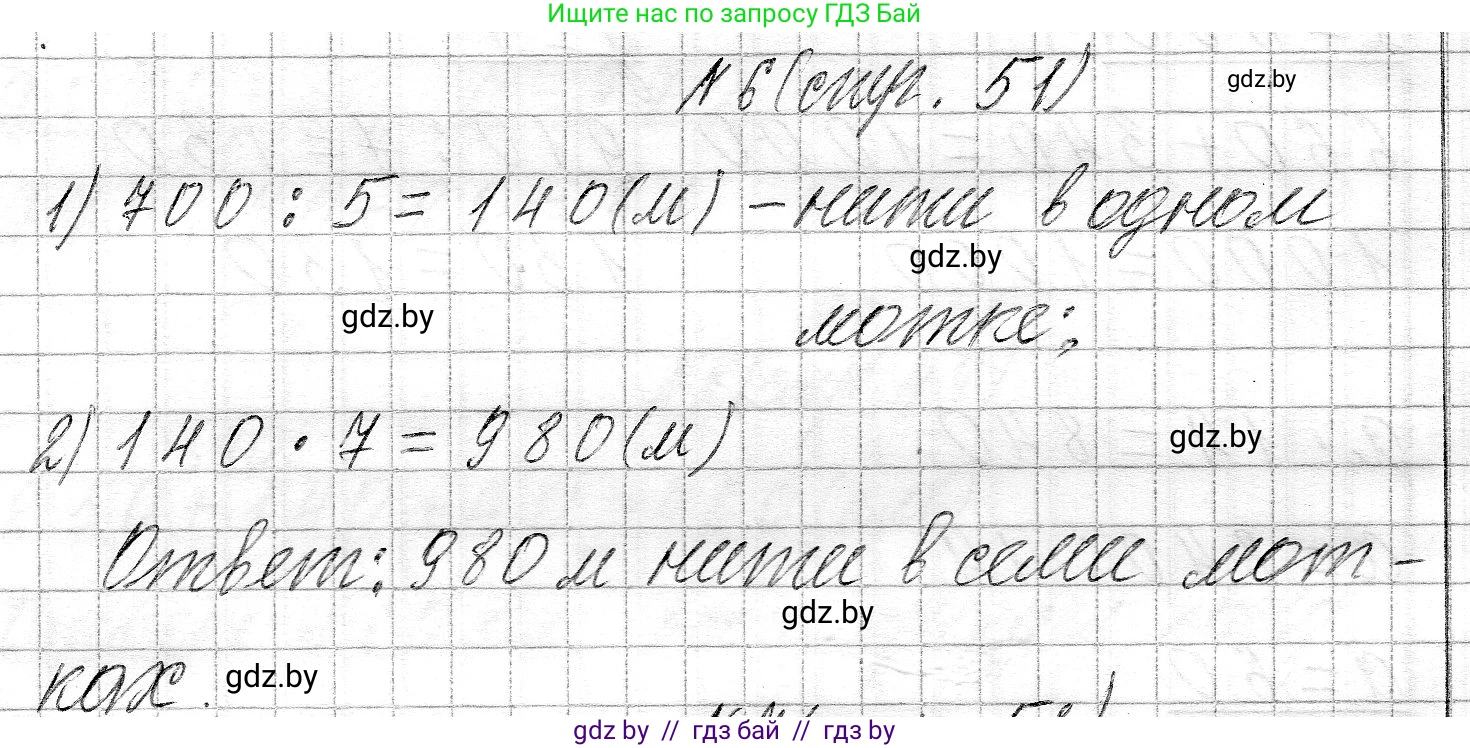 Ищите нас по запросу ГДЗ Бай
№ 6 (стр. 51) gdz.by
1) 700 : 5 = 140 (м) – нити в одном
gdz.by
gdz.by мотке;
2) 140 · 7 = 980 (м) gdz.by
Ответ: 980 м нити в семи мот-
gdz.by
ках. gdz.by
gdz by // гдз бай // гдз by